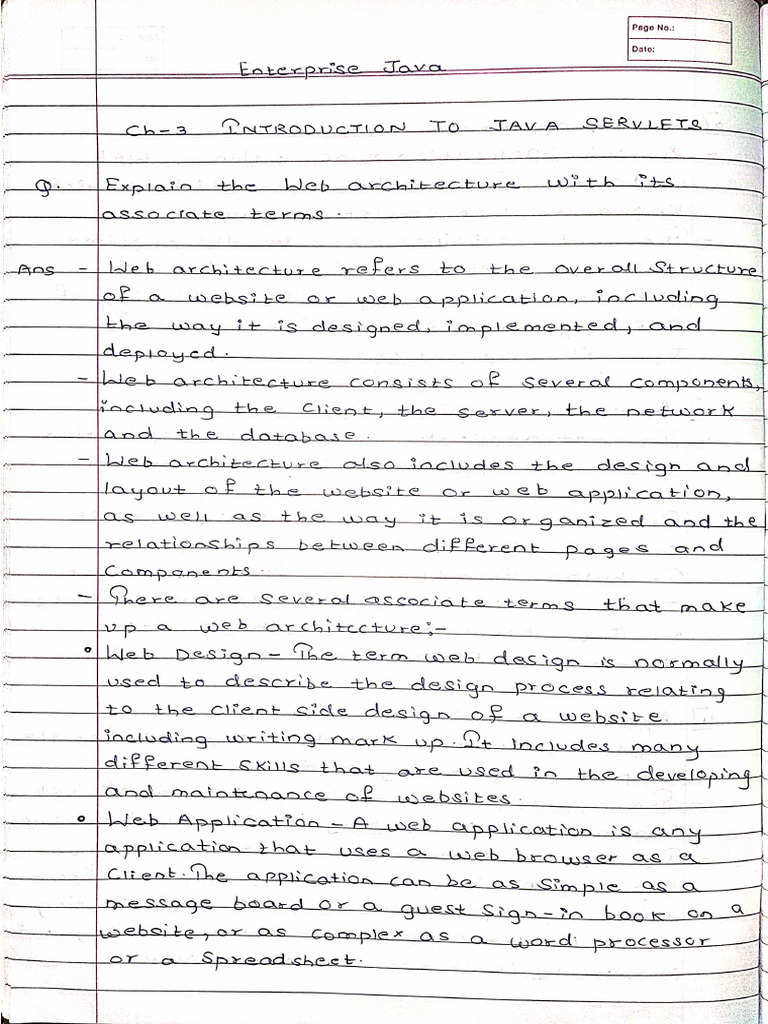 Page No.:
Date:
Enterprise Java
Ch-3 INTRODUCTION TO JAVA SERVLETS
Q. Explain the Web architecture with its
associate terms.
Ans - Web architecture refers to the overall structure
of a website or web application, including
the way it is designed, implemented, and
deployed.
- Web architecture consists of several components,
including the client, the server, the network
and the database.
- Web architecture also includes the design and
layout of the website or web application,
as well as the way it is organized and the
relationships between different pages and
components.
- There are several associate terms that make
up a web architecture:-
• Web Design - The term web design is normally
used to describe the design process relating
to the client side design of a website
including writing mark up. It includes many
different skills that are used in the developing
and maintenance of websites.
• Web Application - A web application is any
application that uses a web browser as a
client. The application can be as simple as a
message board or a guest sign-in book on a
website, or as complex as a word processor
or a spreadsheet.